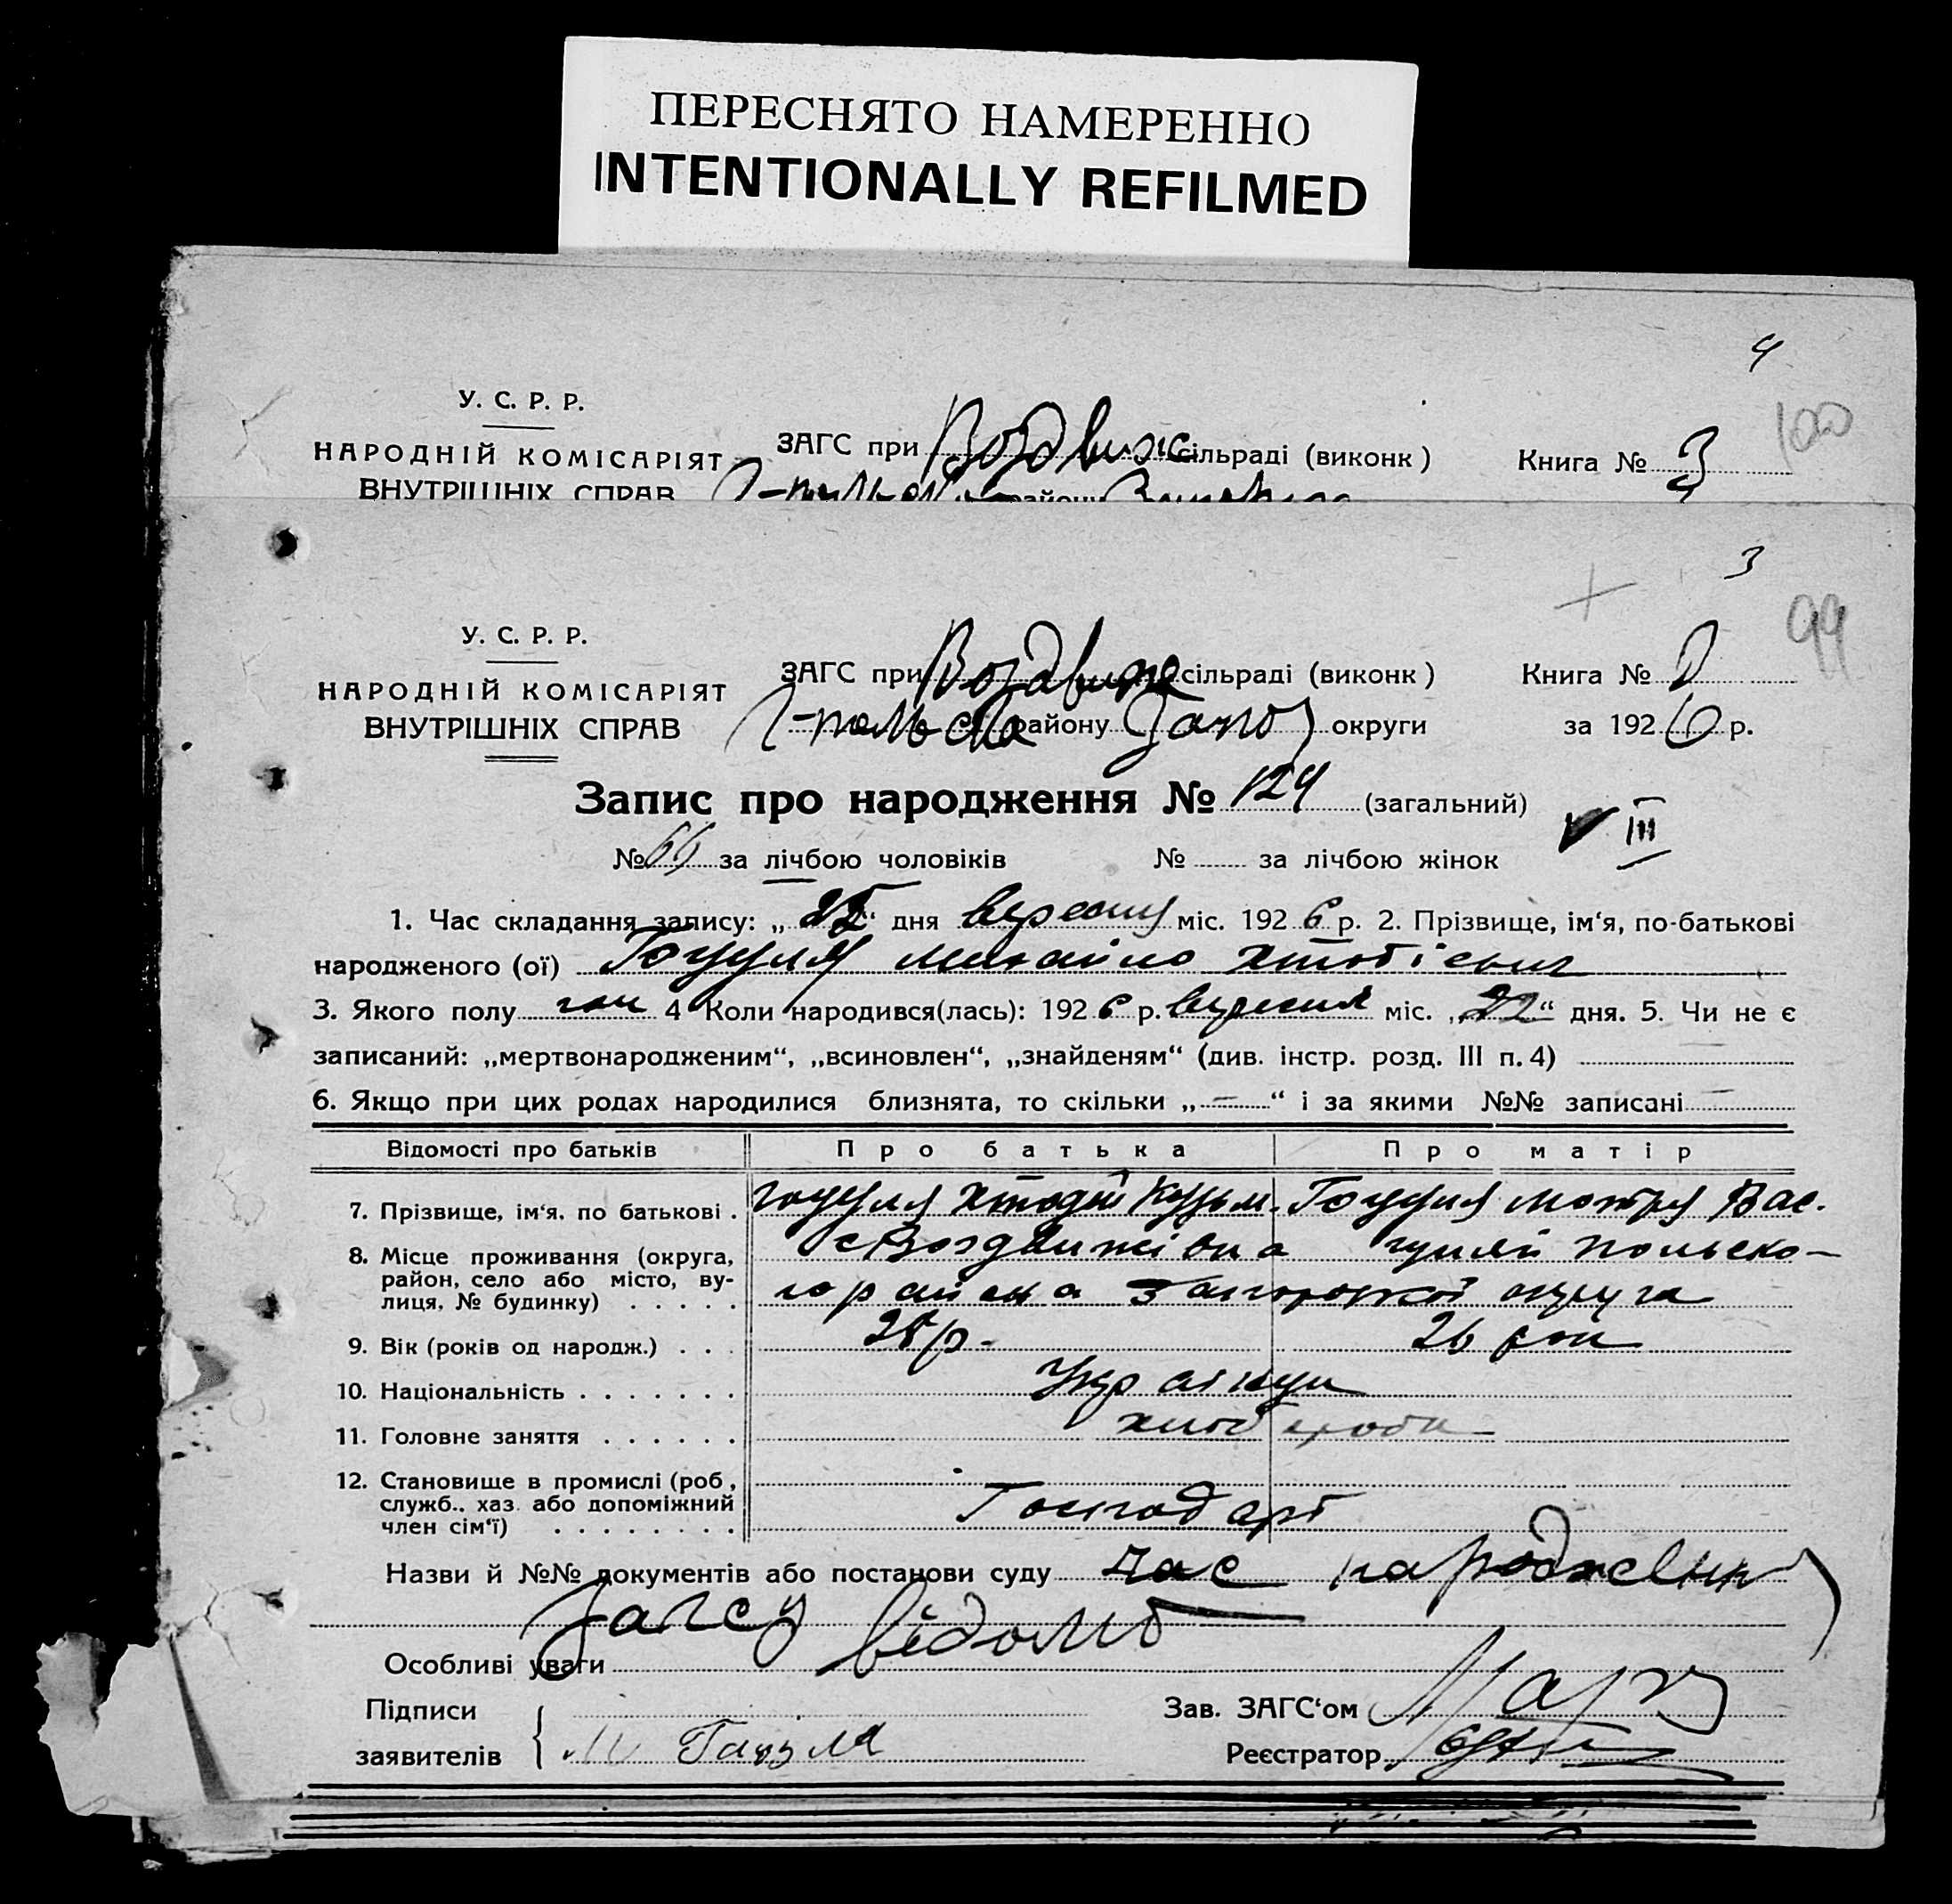 ПЕРЕСНЯТО НАМЕРЕННО
INTENTIONALLY REFILMED
4
100
У. С. Р. Р.
ЗАГС при Воздвиж сільраді (виконк) Книга № 3
НАРОДНІЙ КОМІСАРІЯТ
ВНУТРІШНІХ СПРАВ району
3
99
У. С. Р. Р.
ЗАГС при Воздвиж сільраді (виконк) Книга №
НАРОДНІЙ КОМІСАРІЯТ
ВНУТРІШНІХ СПРАВ Г-польськ району Запоз округи за 1926 р.
Запис про народження № 124 (загальний)
III
№ 66 за лічбою чоловіків № за лічбою жінок
1. Час складання запису: „ “ дня вересня міс. 1926 р. 2. Прізвище, ім‘я, по-батькові
народженого (ої) Гоцуля Михайло
3. Якого полу чол 4 Коли народився(лась): 1926 р. вересня міс. „22“ дня. 5. Чи не є
записаний: „мертвонародженим“, „всиновлен“, „знайденям“ (див. інстр. розд. III п. 4)
6. Якщо при цих родах народилися близнята, то скільки „–“ і за якими №№ записані –
Відомості про батьків Про батька Про матір
7. Прізвище, ім‘я, по батькові . Гоцуля Кузьм. Гоцуля Мотря Вас.
8. Місце проживання (округа, с Воздвижівка Гуляй польсько-
район, село або місто, ву-
лиця, № будинку) . . . . . го района округа
9. Вік (років од народж.) . . . 25 р. 26 рок
10. Національність . . . . . . . Українці
11. Головне заняття . . . . . . хлібороби
12. Становище в промислі (роб,
служб., хаз. або допоміжний Господарі
член сім‘ї) . . . . . . . .
Назви й №№ документів або постанови суду час народження
Загсу відомо
Особливі уваги
Підписи Зав. ЗАГС‘ом
заявителів М Гацуля Реєстратор